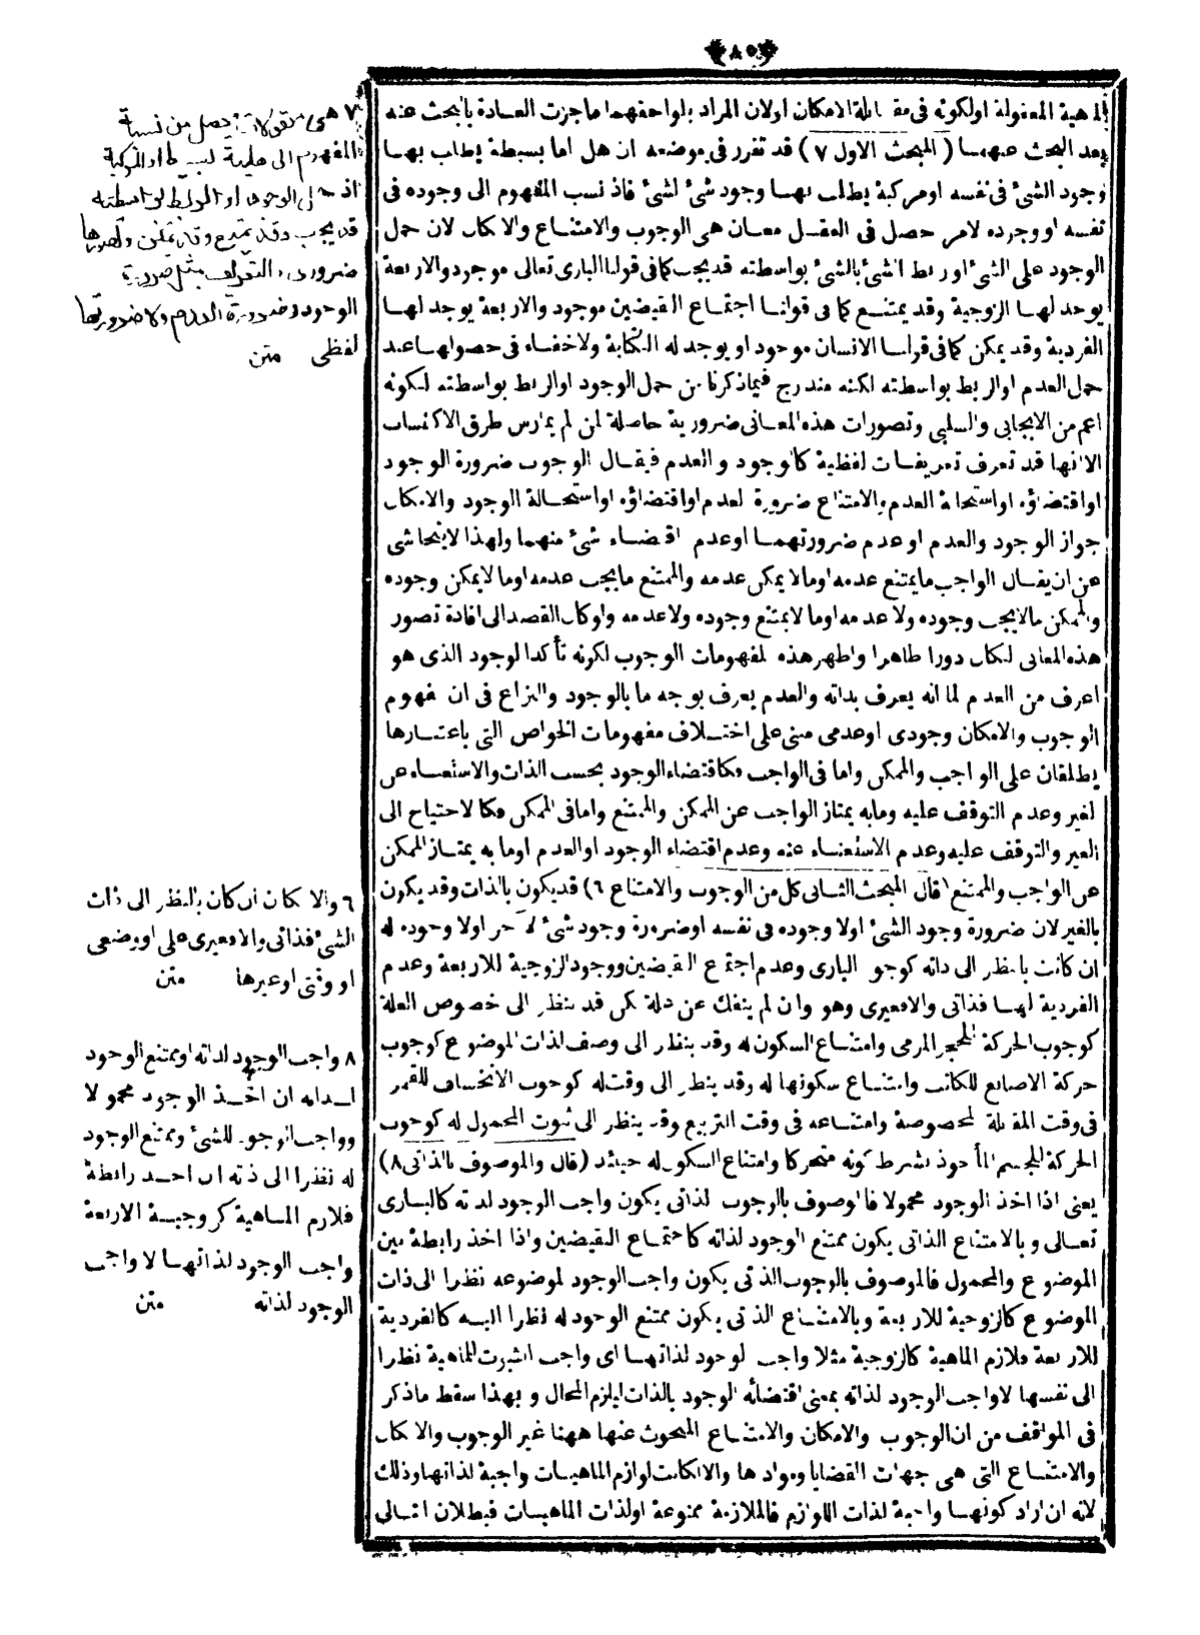 ٨٥
الماهية المعقولة اولكونه فى مقابلة الامكان اولان المراد بلواحقهما ما جرت العادة بالبحث عنه
بعد البحث عنهما (المبحث الاول ٧) قد تقرر فى موضعه ان هل اما بسيطة يطلب بها
وجود الشئ فى نفسه او مركبة يطلب بها وجود شئ لشئ فاذ نسب المفهوم الى وجوده فى
نفسه او وجوده لامر حصل فى العقل معان هى الوجوب والامتناع والامكان لان حمل
الوجود على الشئ او ربط الشئ بالشئ بواسطته قد يجب كما فى قولنا البارى تعالى موجود والاربعة
يوجد لها الزوجية وقد يمتنع كما فى قولنا اجتماع النقيضين موجود والاربعة يوجد لها
الفردية وقد يمكن كما فى قولنا الانسان موجود او يوجد له الكتابة ولا خفاء فى حصولها عند
حمل العدم او الربط بواسطته لكنه مندرج فيما ذكرنا من حمل الوجود او الربط بواسطته لكونه
اعم من الايجابى والسلبى وتصورات هذه المعانى ضرورية حاصلة لمن لم يمارس طرق الاكتساب
الا انها قد تعرف تعريفات لفظية كالوجود والعدم فيقال الوجوب ضرورة الوجود
او اقتضاؤه او استحالة العدم والامتناع ضرورة العدم او اقتضاؤه او استحالة الوجود والامكان
جواز الوجود والعدم او عدم ضرورتهما او عدم اقتضاء شئ منهما ولهذا لا يتحاشى
عن ان يقال الواجب ما يمتنع عدمه او ما لا يمكن عدمه والممتنع ما يجب عدمه او ما لا يمكن وجوده
والممكن ما لا يجب وجوده ولا عدمه او ما لا يمتنع وجوده ولا عدمه ولو كان القصد الى افادة تصور
هذه المعانى لكان دورا ظاهرا واظهر هذه المفهومات الوجوب لكونه تأكد الوجود الذى هو
اعرف من العدم لما انه يعرف بذاته والعدم يعرف بوجه ما بالوجود والنزاع فى ان مفهوم
الوجوب والامكان وجودى او عدمى مبنى على اختلاف مفهومات الخواص التى باعتبارها
يطلقان على الواجب والممكن واما فى الواجب فكاقتضاء الوجود بحسب الذات والاستغناء عن
الغير وعدم التوقف عليه وما به يمتاز الواجب عن الممكن والممتنع واما فى الممكن فكالاحتياج الى
الغير والتوقف عليه وعدم الاستغناء عنه وعدم اقتضاء الوجود او العدم او ما به يمتاز الممكن
عن الواجب والممتنع (قال المبحث الثانى كل من الوجوب والامتناع ٦) قد يكون بالذات وقد يكون
بالغير لان ضرورة وجود الشئ او لا وجوده فى نفسه او ضرورة وجود شئ لآخر او لا وجوده له
ان كانت بالنظر الى ذاته كوجود البارى وعدم اجتماع النقيضين ووجود الزوجية للاربعة وعدم
الفردية لها فذاتى والا فغيرى وهو وان لم ينفك عن علة لكن قد ينظر الى خصوص العلة
كوجوب الحركة للحجر المرمى وامتناع السكون له وقد ينظر الى وصف لذات الموضوع كوجوب
حركة الاصابع للكاتب وامتناع سكونها له وقد ينظر الى وقت له كوجوب الانخساف للقمر
فى وقت المقابلة المخصوصة وامتناعه فى وقت التربيع وقد ينظر الى ثبوت المحمول له كوجوب
الحركة للجسم المأخوذ بشرط كونه متحركا وامتناع السكون له حينئذ (قال والموصوف بالذاتى ٨)
يعنى اذا اخذ الوجود محمولا فالموصوف بالوجوب الذاتى يكون واجب الوجود لذاته كالبارى
تعالى وبالامتناع الذاتى يكون ممتنع الوجود لذاته كاجتماع النقيضين واذا اخذ رابطة بين
الموضوع والمحمول فالموصوف بالوجوب الذاتى يكون واجب الوجود لموضوعه نظرا الى ذات
الموضوع كالزوجية للاربعة وبالامتناع الذاتى يكون ممتنع الوجود له نظرا اليه كالفردية
للاربعة فلازم الماهية كالزوجية مثلا واجب الوجود لذاتها اى واجب الثبوت للماهية نظرا
الى نفسها لا واجب الوجود لذاته بمعنى اقتضائه الوجود بالذات ليلزم المحال وبهذا سقط ما ذكر
فى المواقف من ان الوجوب والامكان والامتناع المبحوث عنها ههنا غير الوجوب والامكان
والامتناع التى هى جهات القضايا وموادها والا لكانت لوازم الماهيات واجبة لذاتها وذلك
لانه ان اراد كونها واجبة لذات اللوازم فالملازمة ممنوعة او لذات الماهيات فبطلان التالى
٧ هى معقولات تحصل من نسبة
المفهوم الى هلية بسيطة او مركبة
اذ حمل الوجود او الربط بواسطته
قد يجب وقد يمتنع وقد يمكن وتصورها
ضرورى والتعريف بمثل ضرورة
الوجود وضرورة العدم ولا ضرورتهما
لفظى متن
٦ والامكان ان كان بالنظر الى ذات
الشئ فذاتى والا فغيرى على او وضعى
او وقتى او غيرها متن
٨ واجب الوجود لذاته او ممتنع الوجود
لذاته ان اخذ الوجود محمولا
وواجب الوجود للشئ وممتنع الوجود
له نظرا الى ذاته ان اخذ رابطة
فلازم الماهية كزوجية الاربعة
واجب الوجود لذاتها لا واجب
الوجود لذاته متن